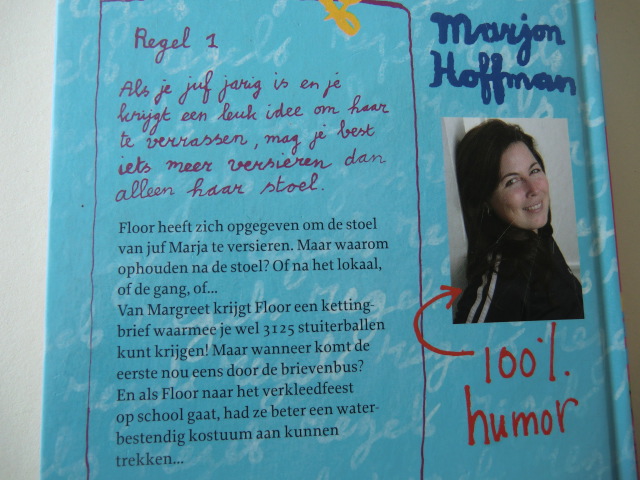 Regel 1
Als je juf jarig is en je
krijgt een leuk idee om haar
te verrassen, mag je best
iets meer versieren dan
alleen haar stoel.
Floor heeft zich opgegeven om de stoel
van juf Marja te versieren. Maar waarom
ophouden na de stoel? Of na het lokaal,
of de gang, of...
Van Margreet krijgt Floor een ketting-
brief waarmee je wel 3125 stuiterballen
kunt krijgen! Maar wanneer komt de
eerste nou eens door de brievenbus?
En als Floor naar het verkleedfeest
op school gaat, had ze beter een water-
bestendig kostuum aan kunnen
trekken...
Marjon
Hoffman
100%
humor